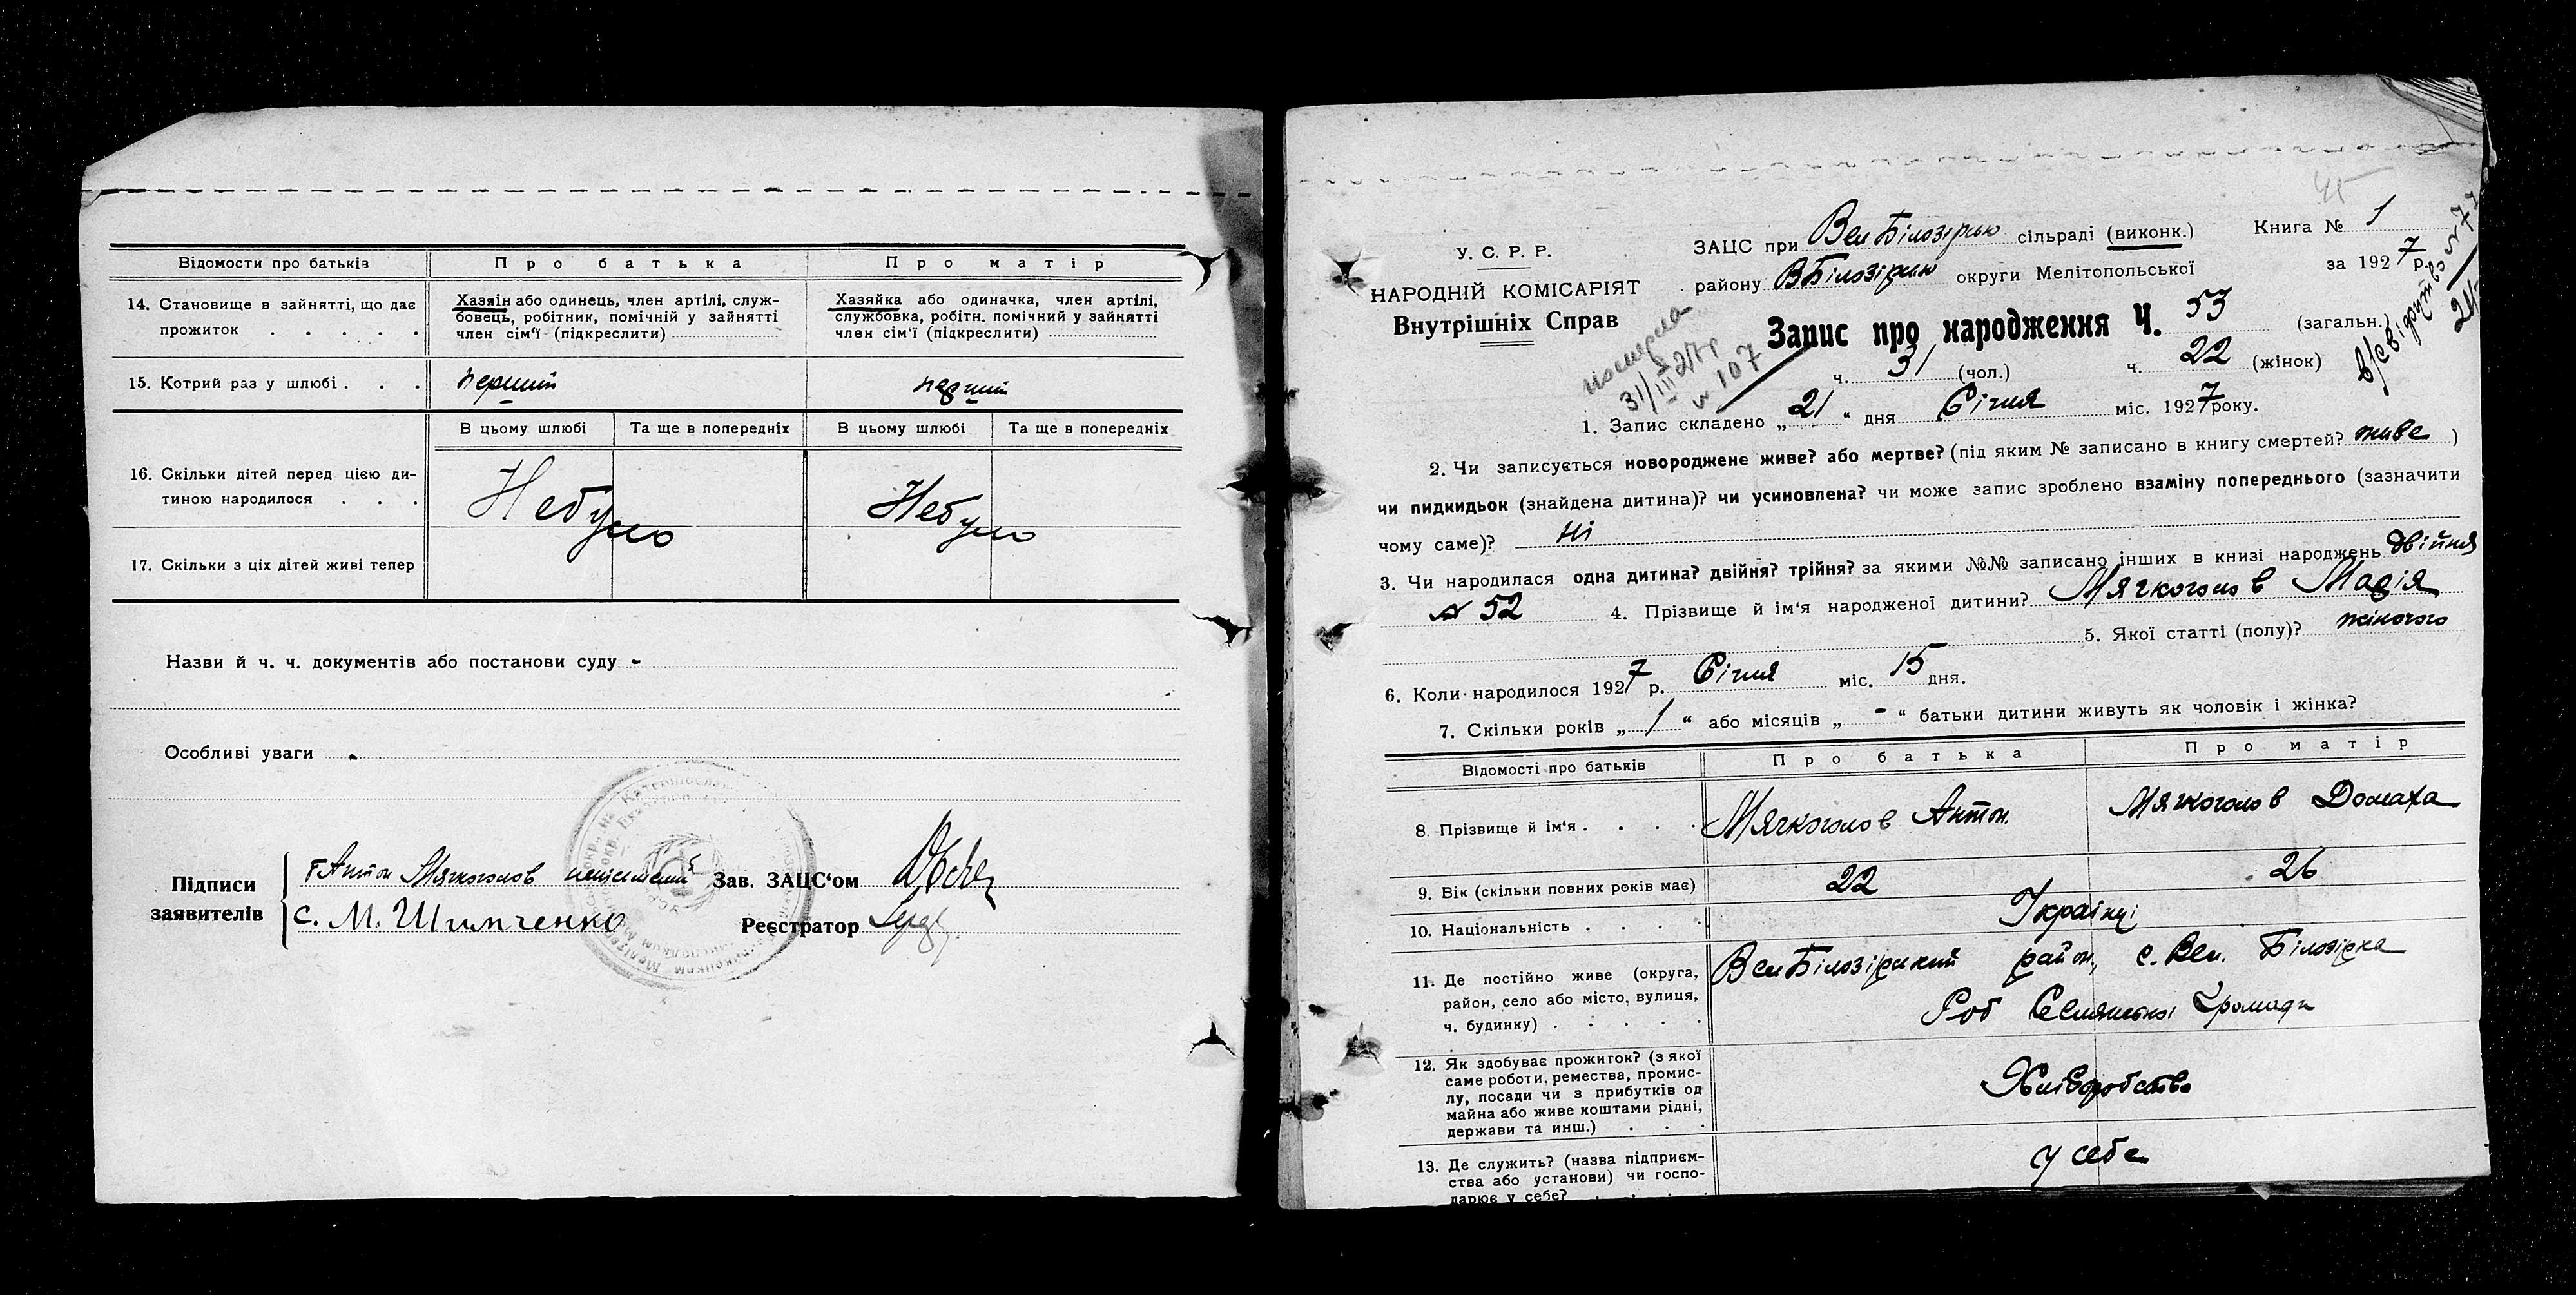 Відомости про батьків
Про батька
Про матір
14. Становище в зайнятті, що дає
прожиток . . . . .
Хазяін або одинець, член артілі, служ-
бовець, робітник, помічній у зайнятті
член сім'ї (підкреслити)
Хазяйка або одиначка, член артілі,
службовка, робітн. помічний у зайнятті
член сім'ї (підкреслити)
15. Котрий раз у шлюбі . . .
перший
перший
В цьому шлюбі
Та ще в попередніх
В цьому шлюбі
Та ще в попередніх
16. Скільки дітей перед цією ди-
тиною народилося . . .
Небуло
Небуло
17. Скільки з ціх дітей живі тепер
Назви й ч. ч. документів або постанови суду -
Особливі уваги
Підписи
заявителів
Антон Мягкоголов неписменний
Зав. ЗАЦС'ом
с. М. Шимченко
Реєстратор
У. С. Р. Р.
НАРОДНІЙ КОМІСАРІЯТ
Внутрішніх Справ
ЗАЦС при Вел Білозірськ сільраді (виконк.)
Книга № 1
району ВБілозірськ округи Мелітопольської
за 1927 р.
померла
31/III 27 р
№ 107
Запис про народження Ч. 53 (загальн.)
ч. 31 (чол.) ч. 22 (жінок)
1. Запис складено „21“ дня Січня міс. 1927 року.
2. Чи записується новороджене живе? або мертве? (під яким № записано в книгу смертей? живе )
чи пидкидьок (знайдена дитина)? чи усиновлена? чи може запис зроблено взаміну попереднього (зазначити
чому саме)? Ні
3. Чи народилася одна дитина? двійня? трійня? за якими №№ записано інших в книзі народжень двійня
№ 52 4. Прізвище й ім'я народженої дитини? Мягкоголов Марія
5. Якої статті (полу)? жіночого
6. Коли народилося 1927 р. Січня міс. 15 дня.
7. Скільки років „1“ або місяців „-“ батьки дитини живуть як чоловік і жінка?
Відомості про батьків
Про батька
Про матір
8 Прізвище й ім'я . . . .
Мягкоголов Антон
Мягкоголов Домаха
9. Вік (скільки повних років має)
22
26
10. Національність . . . .
Українці
11. Де постійно живе (округа,
район, село або місто, вулиця,
ч. будинку) . . . . .
Вел Білозірський район, с. Вел. Білозірка
Роб Селянської Громади
12. Як здобуває прожиток? (з якої
саме роботи, ремества, промис-
лу, посади чи з прибутків од
майна або живе коштами рідні,
держави та инш.) . . .
Хліборобство
13. Де служить? (назва підприєм-
ства або установи) чи госпо-
дарює у себе? . . . .
у себе